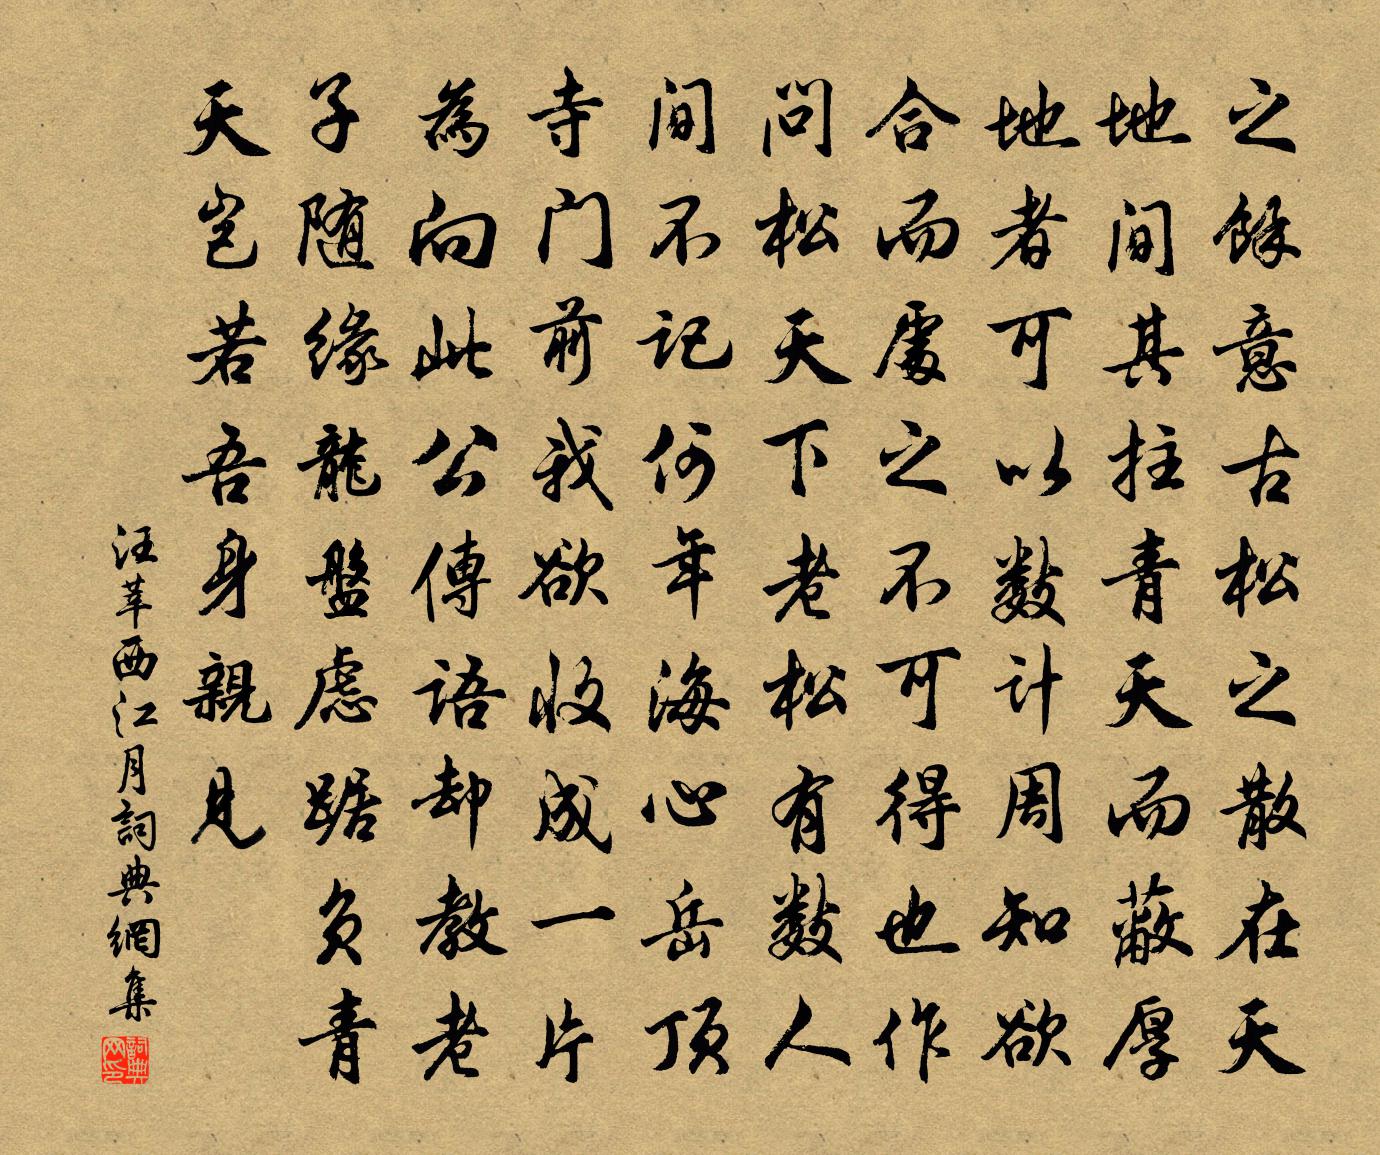 之餘意古松之散在天
地間其拄青天而蔽厚
地者可以數計周知欲
合而處之不可得也作
問松天下老松有數人
間不记何年海心岳頂
寺门前我欲收成一片
為向此公傳語却教老
子随緣龍盤虑踞負青
天岂若吾身親見
汪莘西江月詞典網集
詞典网印